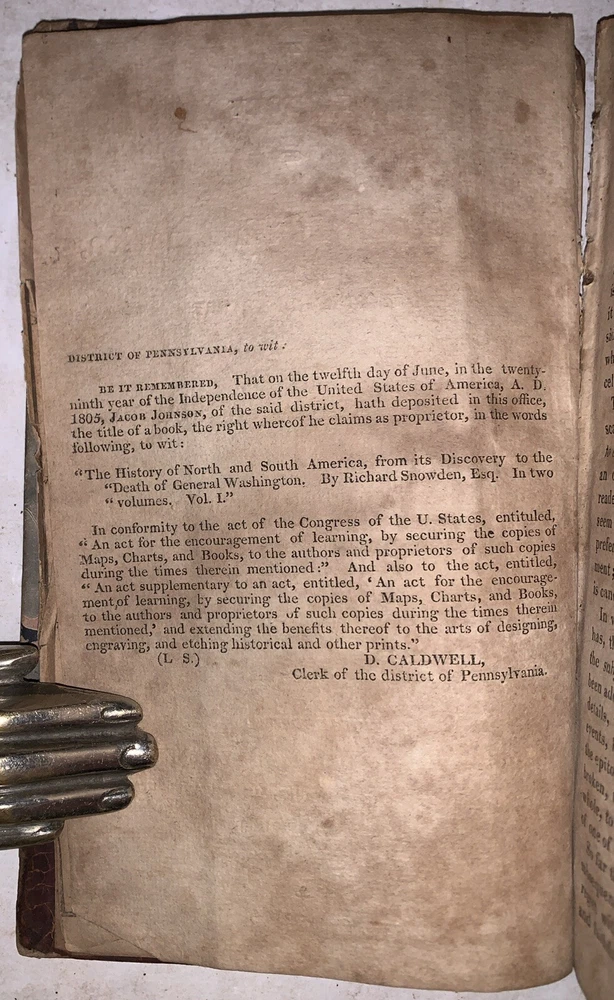 DISTRICT OF PENNSYLVANIA, to wit:
BE IT REMEMBERED, That on the twelfth day of June, in the twenty-
ninth year of the Independence of the United States of America, A. D.
1805, JACOB JOHNSON, of the said district, hath deposited in this office,
the title of a book, the right whereof he claims as proprietor, in the words
following, to wit:
"The History of North and South America, from its Discovery to the
"Death of General Washington. By Richard Snowden, Esq. In two
"volumes. Vol. I."
In conformity to the act of the Congress of the U. States, entituled,
"An act for the encouragement of learning, by securing the copies of
Maps, Charts, and Books, to the authors and proprietors of such copies
during the times therein mentioned:" And also to the act, entitled,
"An act supplementary to an act, entitled, 'An act for the encourage-
ment of learning, by securing the copies of Maps, Charts, and Books,
to the authors and proprietors of such copies during the times therein
mentioned,' and extending the benefits thereof to the arts of designing,
engraving, and etching historical and other prints."
(L S.) D. CALDWELL,
Clerk of the district of Pennsylvania.